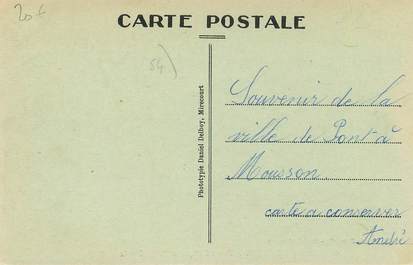 20 €
CARTE POSTALE
54)
Phototypie Daniel Delboy, Mirecourt
Souvenir de la
ville de Pont-à
Mousson.
carte a conserver
André